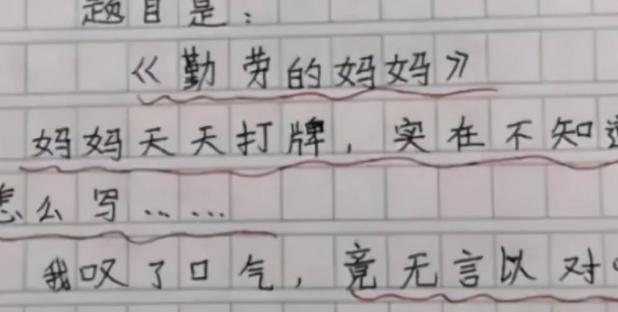 题目是：
《勤劳的妈妈》
妈妈天天打牌，实在不知道
怎么写……
我叹了口气，竟无言以对